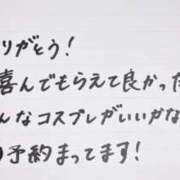 りがとう!
喜んでもらえて良かった
んなコスプレがいいかな
予約まってます!